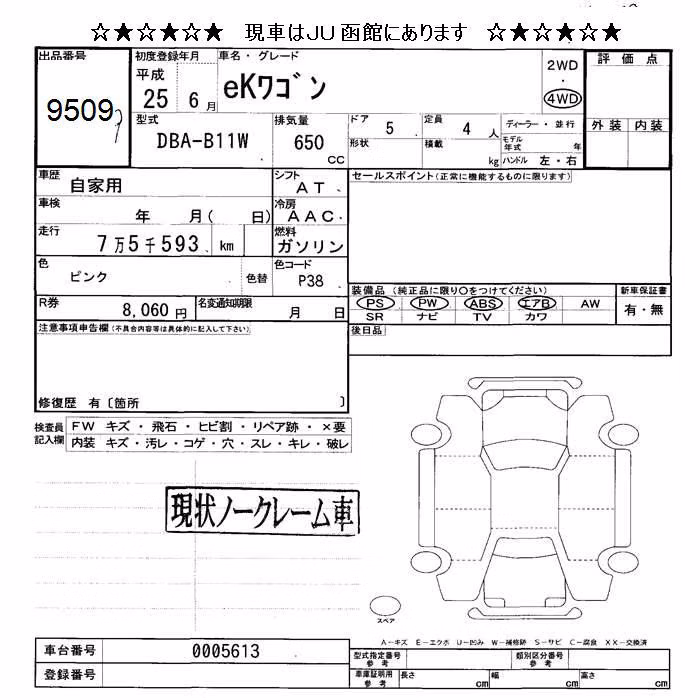 ☆★☆★☆★ 現車はJU函館にあります ☆★☆★☆★
出品番号
9509
初度登録年月
平成
25 6月
車名・グレード
eKワゴン
2WD
・
4WD
評価点
外装 内装
型式
DBA-B11W
排気量
650
CC
ドア 5
形状
定員 4 人
積載 kg
ディーラー・並行
モデル年式 年
ハンドル 左・右
車歴
自家用
シフト
AT
車検
年 月( 日)
冷房
AAC
走行
7万5千593 km
燃料
ガソリン
色
ピンク
色替
色コード
P38
R券
8,060円
名変通知期限
月 日
セールスポイント(正常に機能するものに限ります)
装備品(純正品に限り○をつけてください)
PS PW ABS エアB AW
SR ナビ TV カワ
新車保証書
有・無
後日品
注意事項申告欄(不具合内容等は具体的に記入して下さい)
修復歴 有〔箇所 〕
検査員記入欄
FW キズ・飛石・ヒビ割・リペア跡・×要
内装 キズ・汚レ・コゲ・穴・スレ・キレ・破レ
現状ノークレーム車
スペア
A-キズ E-エクボ U-凹み W-補修跡 S-サビ C-腐食 XX-交換済
車台番号
0005613
登録番号
型式指定番号
参考
類別区分番号
参考
車庫証明用
参考
長さ cm
幅 cm
高さ cm